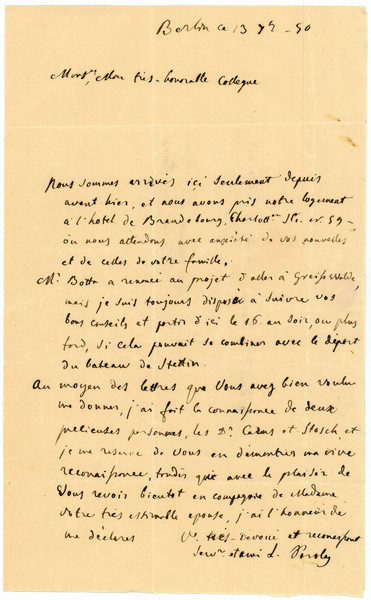 Berlin ce 13 7bre - 50
Monsr, Mon très-honorable Collegue
Nous sommes arrivés içi seulement depuis
avant hier, et nous avons pris notre logement
à l'hotel de Brandebourg, Charlotten Str. nr 59 -
où nous attendons avec anxiété de vos nouvelles
et de celles de votre famille.
Mr Botta a renoncé au projet d'aller à Greifswalde,
mais je suis toujours disposé à suivre vos
bons conseils et partir d'içi le 16 au soir, ou plus
tard, si cela pouvait se combiner avec le départ
du bateau de Stettin.
Au moyen des lettres que Vous avez bien voulu
me donner, j'ai fait la connaissance de deux
precieuses personnes, les Drs Carus et Stosch, et
je me reserve de Vous en démontrer ma vive
reconaissance, tandis que avec le plaisir de
Vous revoir bientot en compagnie de Madame
Votre très estimable epouse, j'ai l'honneur de
me déclarer Vre très-Devoué et reconaissant
Servr et ami L.